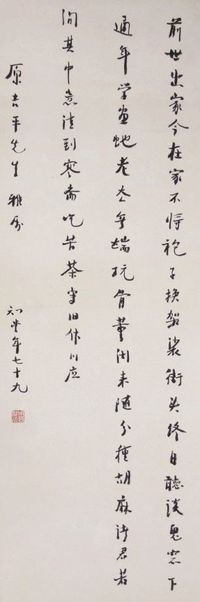 前世出家今在家不将袍子换袈裟街头终日聽談鬼窓下
通年学画蛇老去無端玩骨董闲来随分種胡麻請君若
问其中意請到寒斎吃苦茶旧作以应
原吉平先生雅属
知堂年七十九